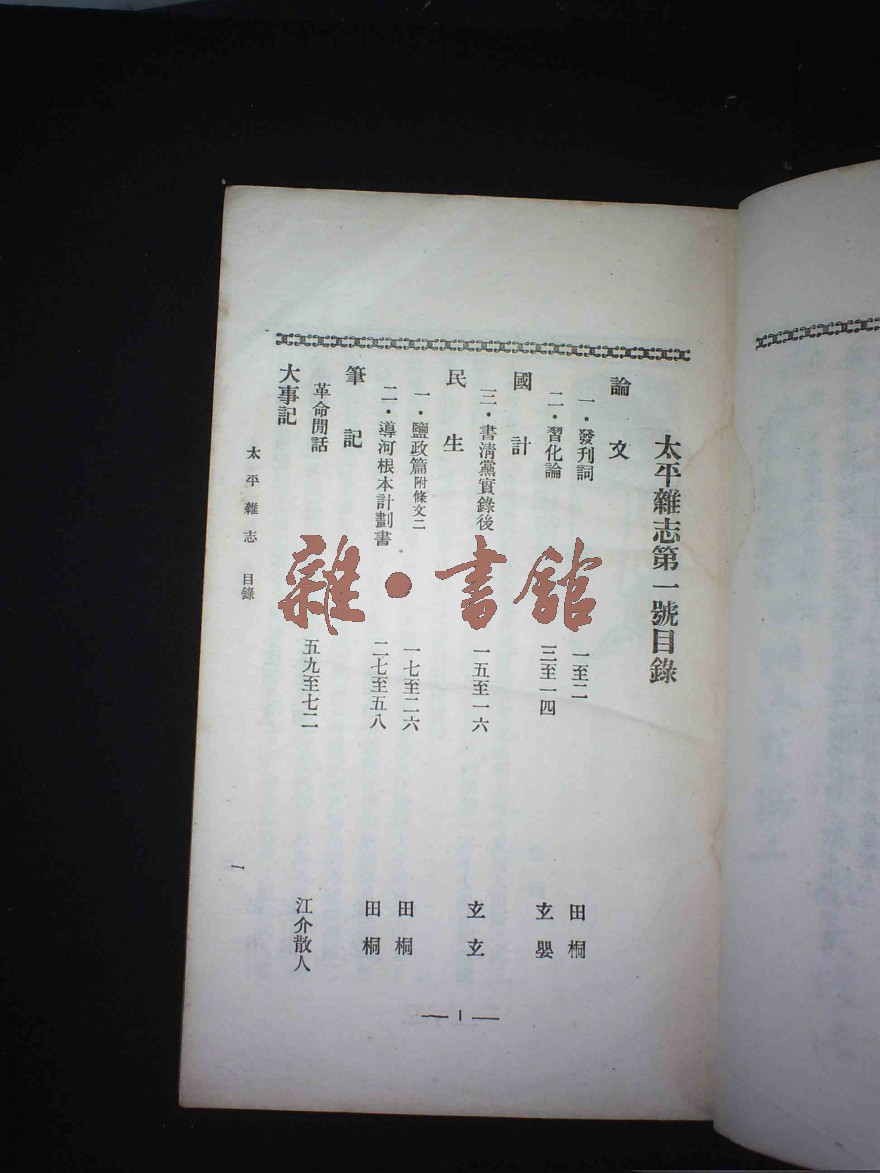 太平雜志第一號目錄
論文
一·發刊詞 一至二 田桐
二·習化論 三至一四 玄嬰
國計
三·書清黨實錄後 一五至一六 玄玄
民生
一·鹽政篇附條文二 一七至二六 田桐
二·導河根本計劃書 二七至五八 田桐
筆記
革命閒話 五九至七二 江介散人
大事記
太平雜志 目錄
一
— 1 —
雜·書館